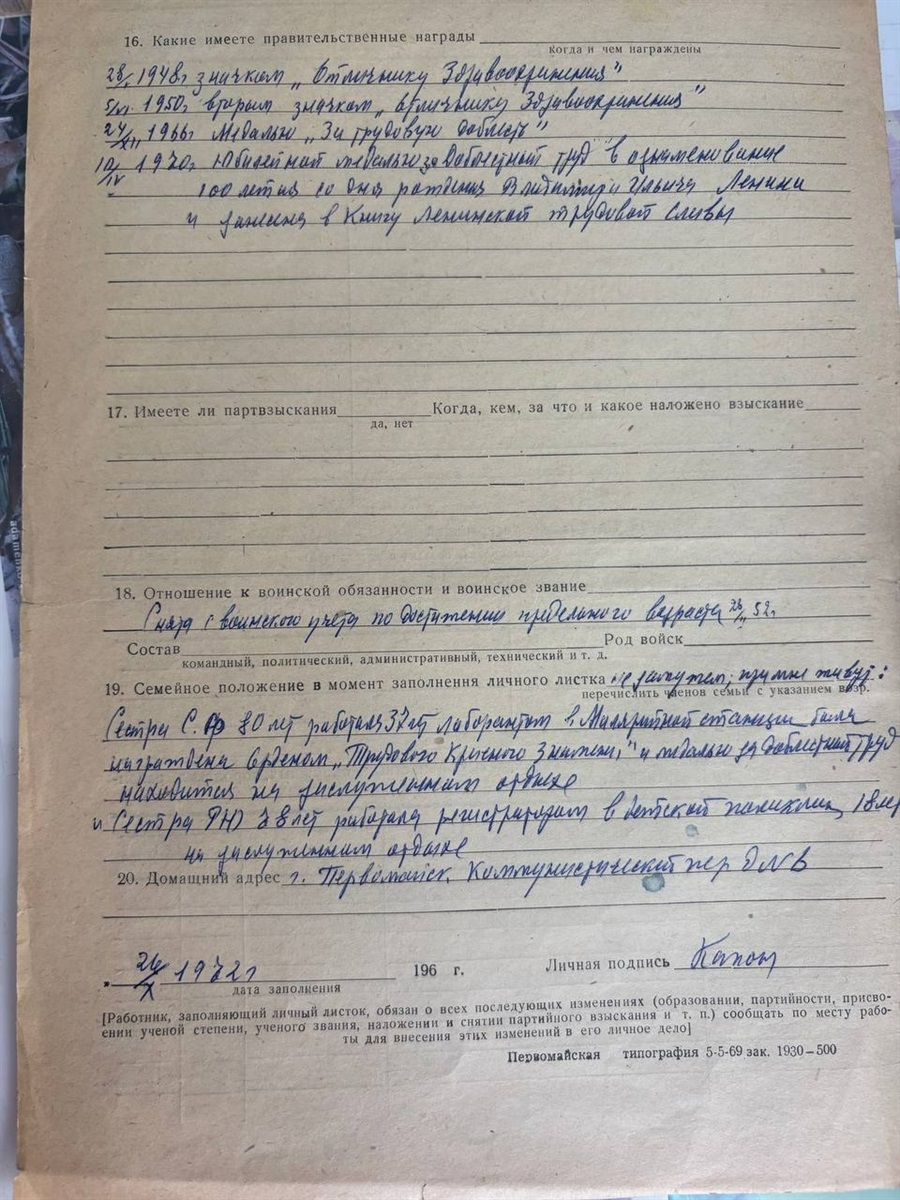 16. Какие имеете правительственные награды
когда и чем награждены
1948г значком „Отличнику Здравоохранения"
1950г вторым значком „отличнику Здравоохранения"
24/ 1966г Медалью „За трудовую доблесть"
10/IV 1970г Юбилейной медалью за Доблестный труд в ознаменование
100 летия со дня рождения Владимира Ильича Ленина
и занесена в Книгу Ленинской трудовой славы
17. Имеете ли партвзыскания Когда, кем, за что и какое наложено взыскание
да, нет
18. Отношение к воинской обязанности и воинское звание
Снята с воинского учета по достижении предельного возраста 52г
Состав Род войск
командный, политический, административный, технический и т. д.
19. Семейное положение в момент заполнения личного листка не замужем, при мне живут:
перечислить членов семьи с указанием возр.
Сестра С. Ф 80 лет работала 37 лет лаборантом в Малярийной станции была
награждена Орденом „Трудового Красного Знамени" и медалью за доблестный труд
находится на заслуженном отдыхе
и Сестра 38 лет работала регистратором в детской 18 лет
на заслуженном отдыхе
20. Домашний адрес г. Первомайск Коммунистический пер д N 8
„ 26/X 1972г 196 г. Личная подпись
дата заполнения
[Работник, заполняющий личный листок, обязан о всех последующих изменениях (образовании, партийности, присво-
ении ученой степени, ученого звания, наложении и снятии партийного взыскания и т. п.) сообщать по месту рабо-
ты для внесения этих изменений в его личное дело]
Первомайская типография 5-5-69 зак. 1930-500